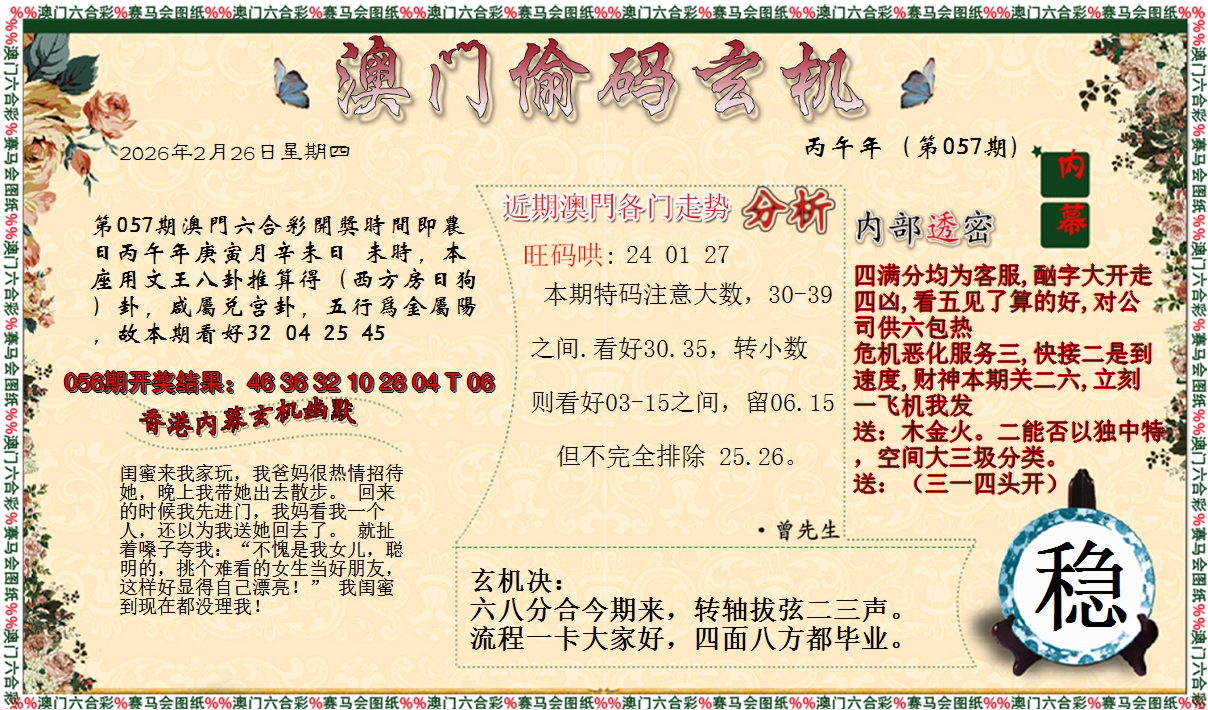 %%澳门六合彩%赛马会图纸%%澳门六合彩%赛马会图纸%%澳门六合彩%赛马会图纸%%澳门六合彩%赛马会图纸%%澳门六合彩%赛马会图纸%%澳门六合彩%赛马会图纸%%
澳门偷码玄机
2026年2月26日星期四
丙午年（第057期）
内幕
第057期澳門六合彩開獎時間即農
日丙午年庚寅月辛未日 未時，本
座用文王八卦推算得（西方房日狗
）卦，咸屬兑宫卦，五行爲金屬陽
，故本期看好32 04 25 45
056期开奖结果：46 36 32 10 28 04 T 06
香港内幕玄机幽默
闺蜜来我家玩，我爸妈很热情招待
她，晚上我带她出去散步。 回来
的时候我先进门，我妈看我一个
人，还以为我送她回去了。 就扯
着嗓子夸我：“不愧是我女儿，聪
明的，挑个难看的女生当好朋友，
这样好显得自己漂亮！” 我闺蜜
到现在都没理我！
近期澳門各门走势 分析
旺码哄: 24 01 27
本期特码注意大数，30-39
之间.看好30.35，转小数
则看好03-15之间，留06.15
但不完全排除 25.26。
·曾先生
玄机决：
六八分合今期来，转轴拔弦二三声。
流程一卡大家好，四面八方都毕业。
内部透密
四满分均为客服,酗字大开走
四凶,看五见了算的好,对公
司供六包热
危机恶化服务三,快接二是到
速度,财神本期关二六,立刻
一飞机我发
送：木金火。二能否以独中特
，空间大三圾分类。
送：（三一四头开）
稳
%%澳门六合彩%赛马会图纸%%澳门六合彩%赛马会图纸%%澳门六合彩%赛马会图纸%%澳门六合彩%赛马会图纸%%澳门六合彩%赛马会图纸%%澳门六合彩%赛马会图纸%%